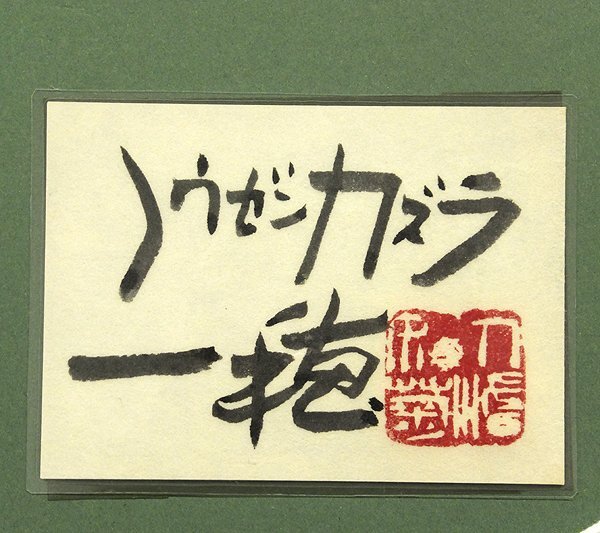 ノウゼンカズラ
一穂